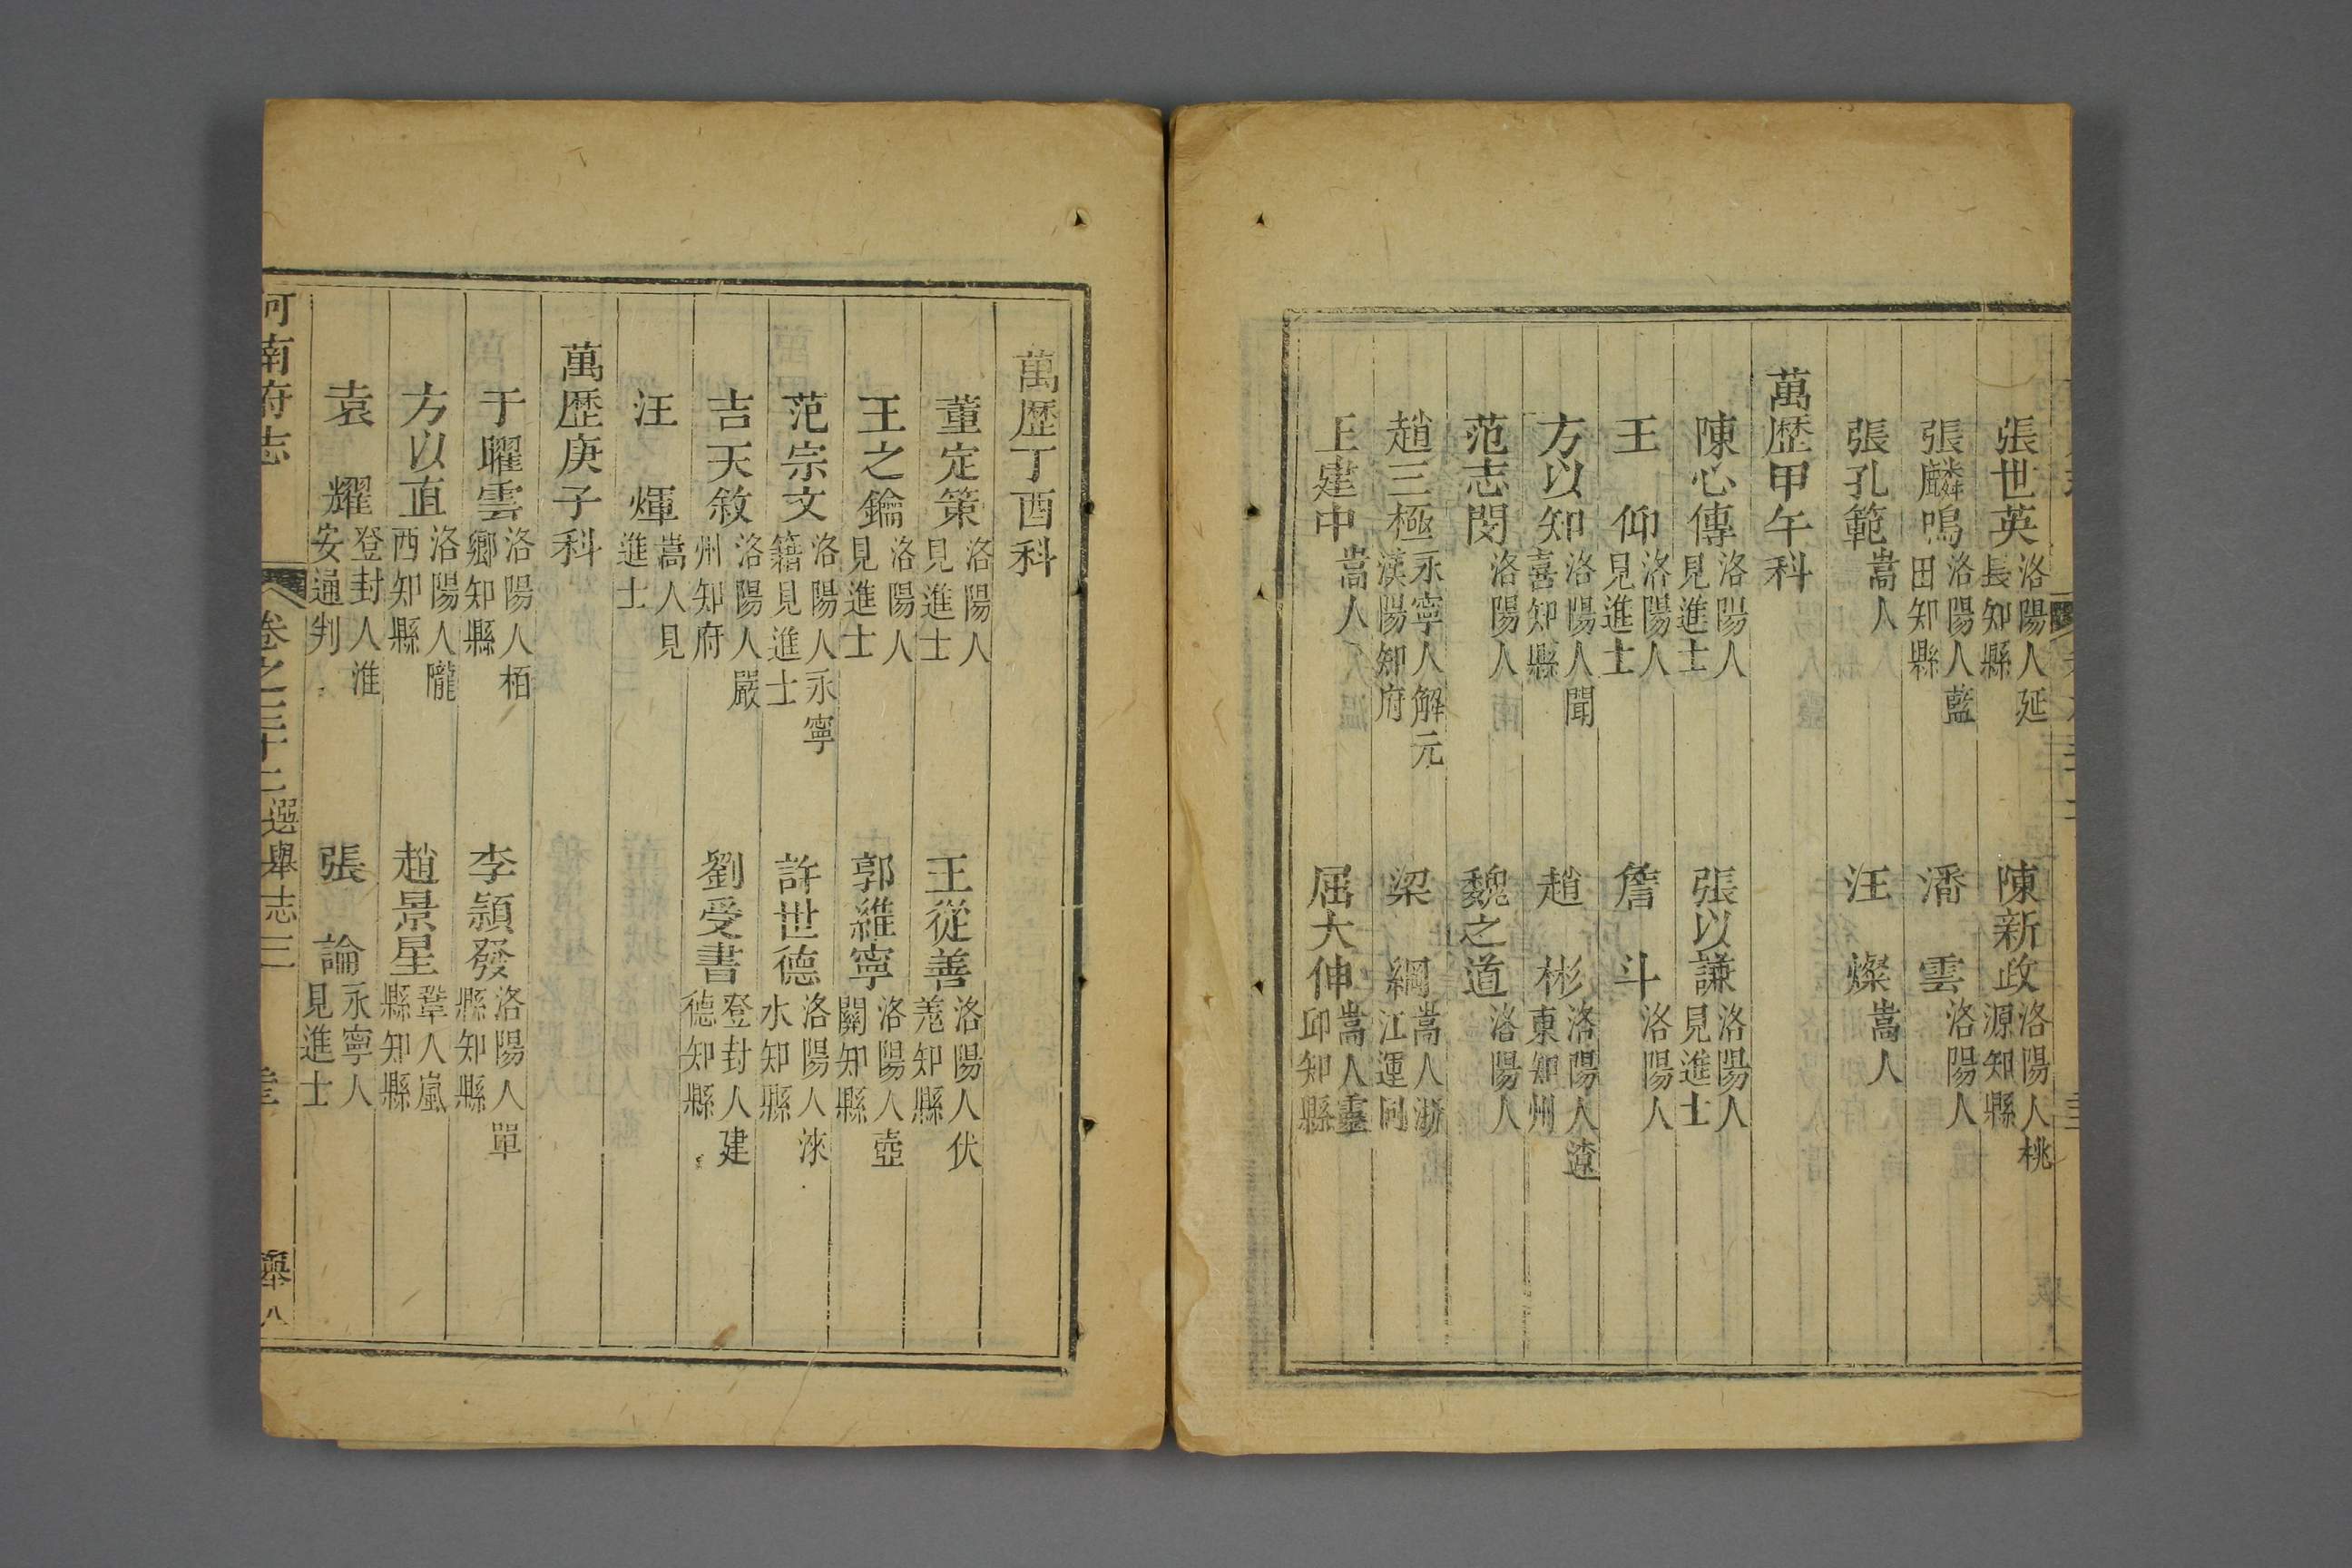 張世英 洛陽人延長知縣 陳新政 洛陽人桃源知縣
張麟鳴 洛陽人藍田知縣 潘雲 洛陽人
張孔範 嵩人 汪燦 嵩人
萬歷甲午科
陳心傳 洛陽人見進士 張以謙 洛陽人見進士
王仰 洛陽人見進士 詹斗 洛陽人
方以知 洛陽人聞喜知縣 趙彬 洛陽人遼東知州
范志閔 洛陽人 魏之道 洛陽人
趙三極 永寧人解元漢陽知府 梁綱 嵩人浙江運同
王建中 嵩人 屈大伸 嵩人靈邱知縣
萬歷丁酉科
董定策 洛陽人見進士 王從善 洛陽人伏羗知縣
王之鑰 洛陽人見進士 郭維寧 洛陽人壺關知縣
范宗文 洛陽人永寧籍見進士 許世德 洛陽人淶水知縣
吉天敘 洛陽人嚴州知府 劉受書 登封人建德知縣
汪煇 嵩人見進士
萬歷庚子科
于曜雲 洛陽人栢鄉知縣 李穎發 洛陽人單縣知縣
方以直 洛陽人隴西知縣 趙景星 鞏人嵐縣知縣
袁耀 登封人淮安通判 張論 永寧人見進士
河南府志 卷之三十二 選舉志三 舉八